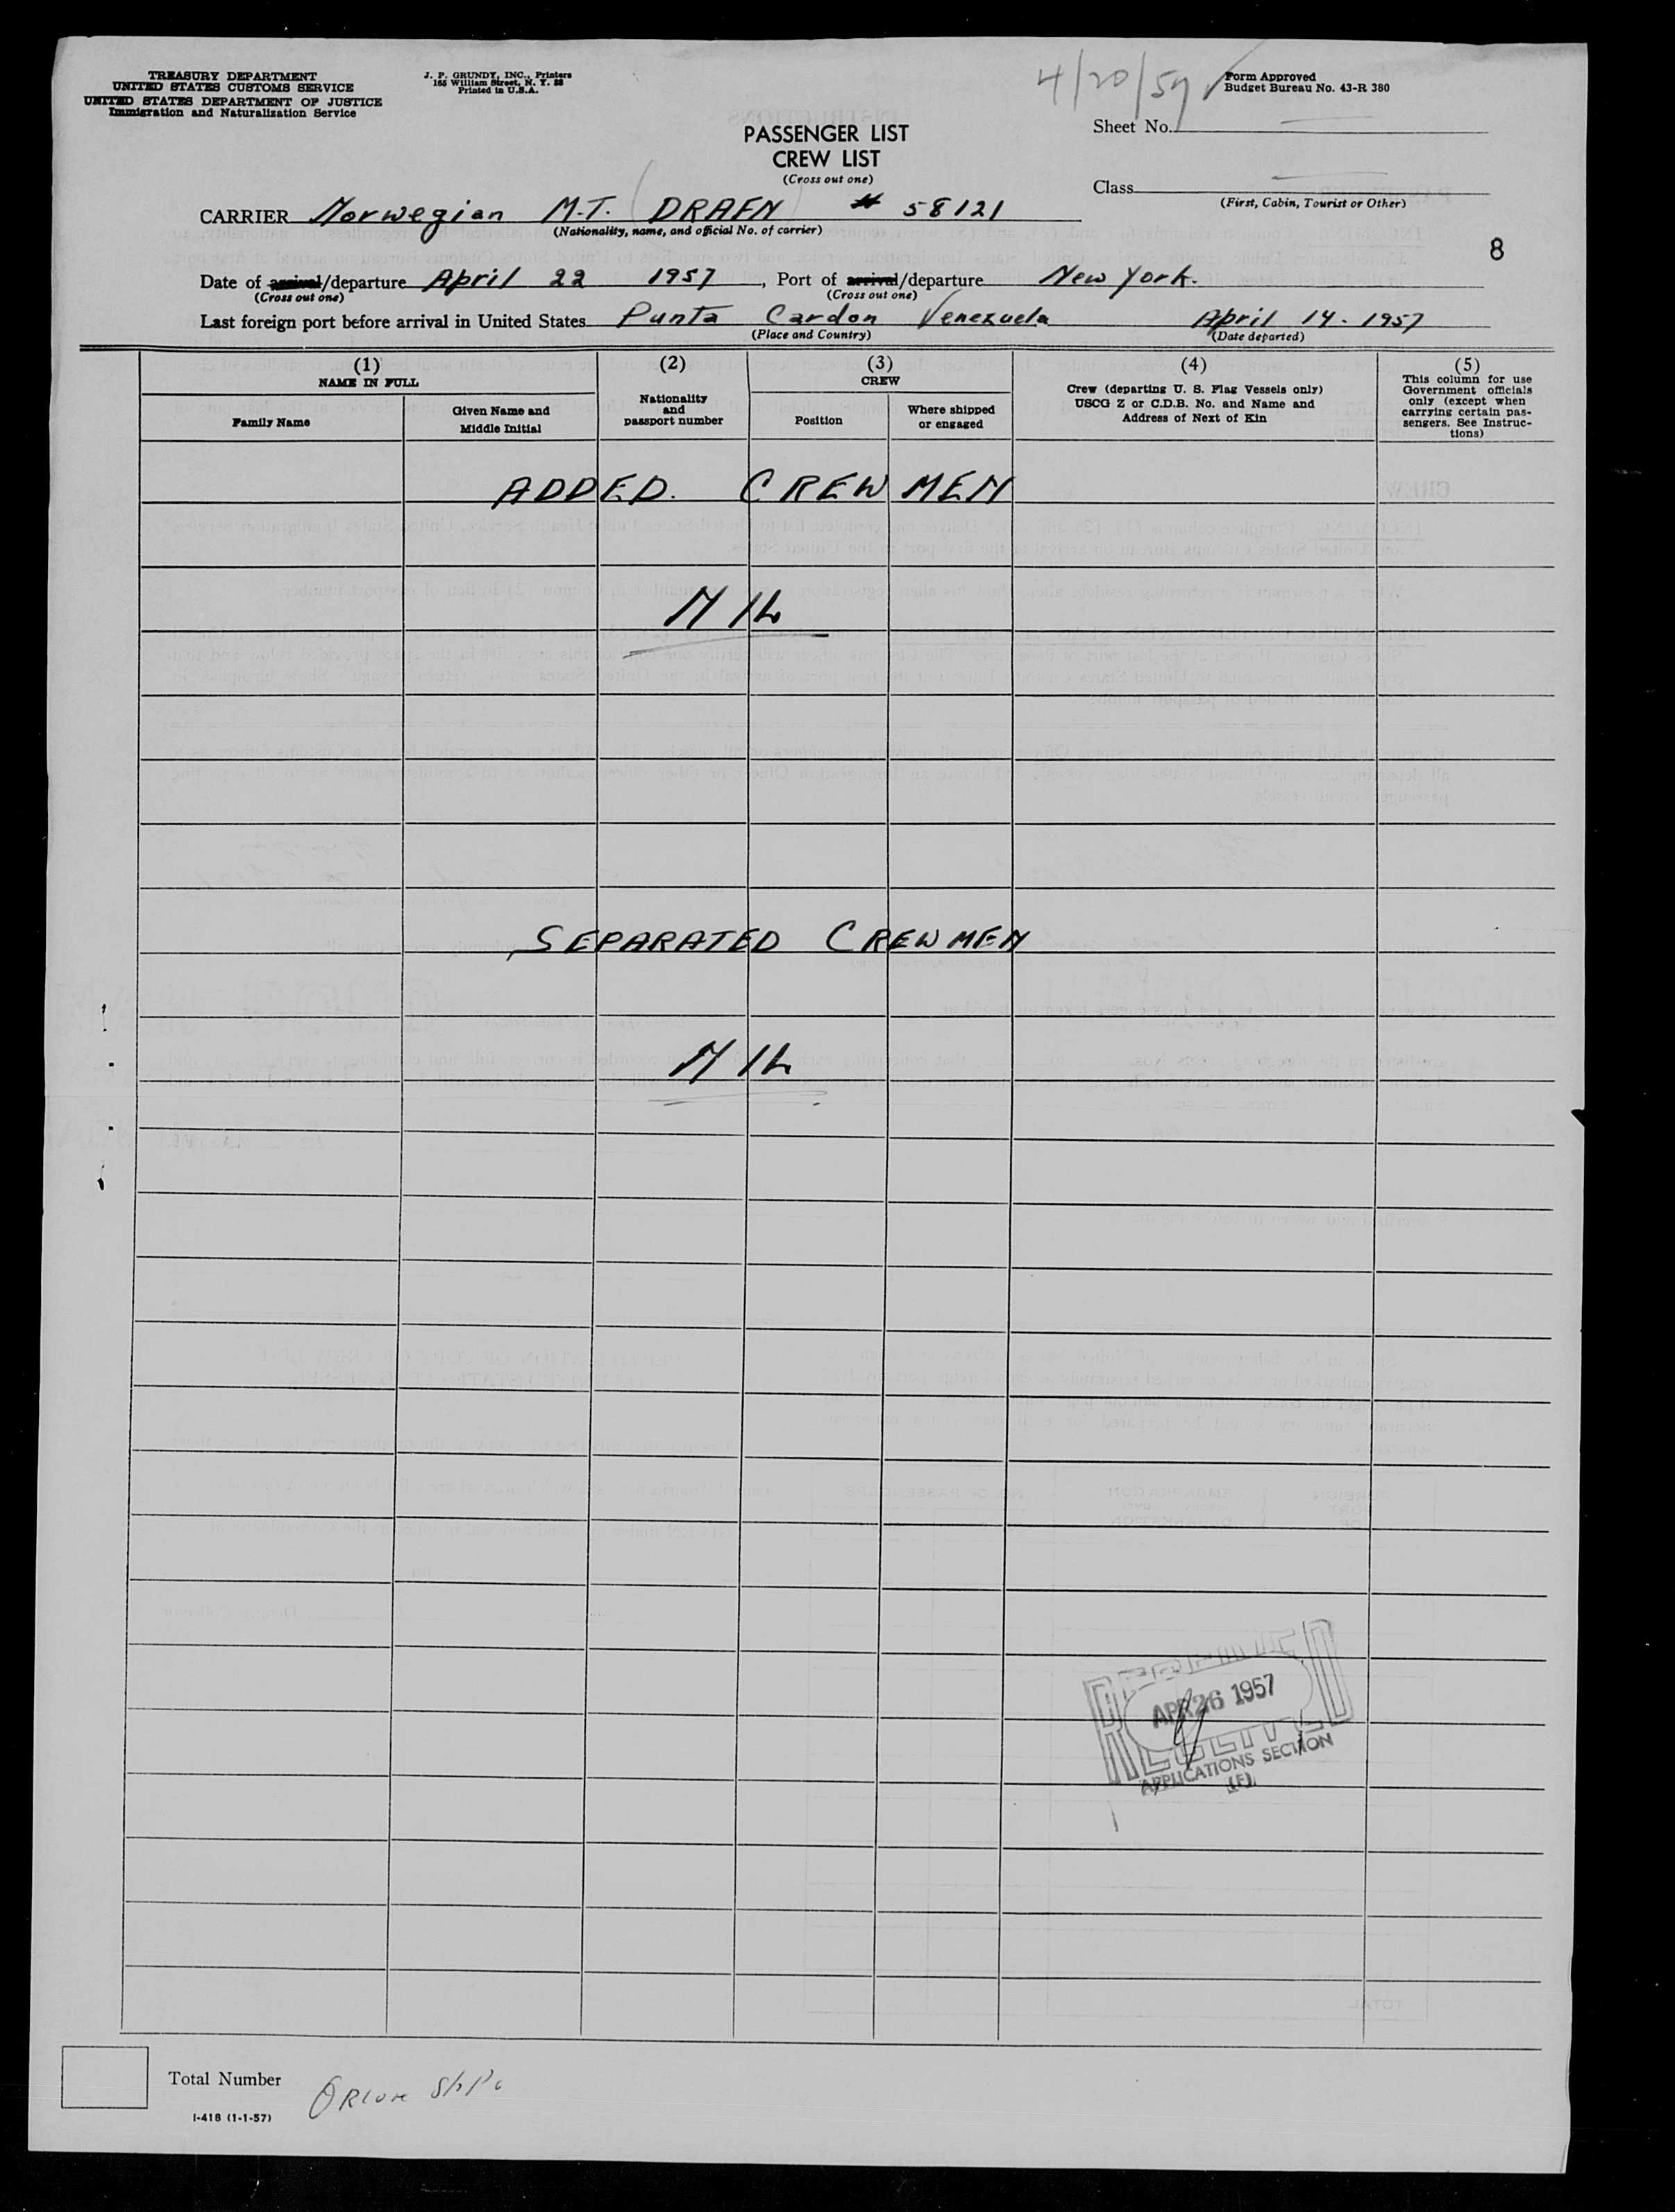 TREASURY DEPARTMENT
UNITED STATES CUSTOMS SERVICE
UNITED STATES DEPARTMENT OF JUSTICE
Immigration and Naturalization Service
J. P. GRUNDY, INC., Printers
165 William Street, N. Y. 38
Printed in U.S.A.
4/20/57
Form Approved
Budget Bureau No. 43-R 380
Sheet No.
PASSENGER LIST
CREW LIST
(Cross out one)
Class
(First, Cabin, Tourist or Other)
CARRIER Norwegian M.T. (DRAFN) # 58121
(Nationality, name, and official No. of carrier)
8
Date of arrival/departure April 22 1957, Port of arrival/departure New York.
(Cross out one) (Cross out one)
Last foreign port before arrival in United States Punta Cardon Venezuela April 14. 1957
(Place and Country) (Date departed)
(1)
NAME IN FULL
Family Name
Given Name and
Middle Initial
(2)
Nationality
and
passport number
(3)
CREW
Position
Where shipped
or engaged
(4)
Crew (departing U. S. Flag Vessels only)
USCG Z or C.D.B. No. and Name and
Address of Next of Kin
(5)
This column for use
Government officials
only (except when
carrying certain pas-
sengers. See Instruc-
tions)
ADDED. CREW MEN
NIL
SEPARATED CREWMEN
NIL
RECEIVED
APR 26 1957
APPLICATIONS SECTION
(F)
Total Number
I-418 (1-1-57)